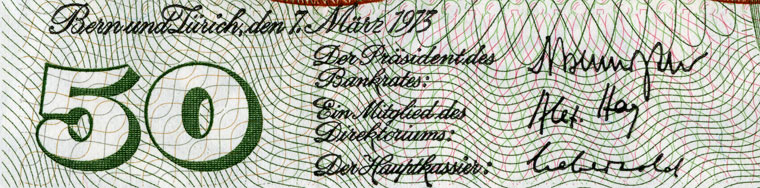 Bern und Zürich, den 7. März 1973
50
Der Präsident des
Bankrates:
Ein Mitglied des
Direktoriums:
Alex. Hay
Der Hauptkassier: